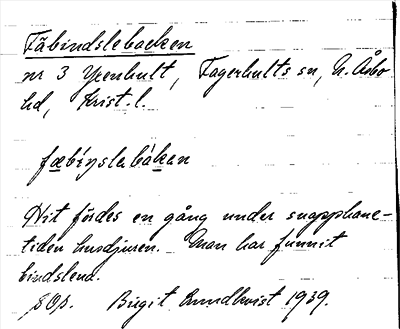 Fäbindslebacken
nr 3 Yxenhult, Fagerhults sn, N. Åsbo
hd, Krist. l.
fæbíŋslabàkan
Hit fördes en gång under snapphane-
tiden husdjuren. Man har funnit
bindslena.
Birgit Rundkvist 1939.